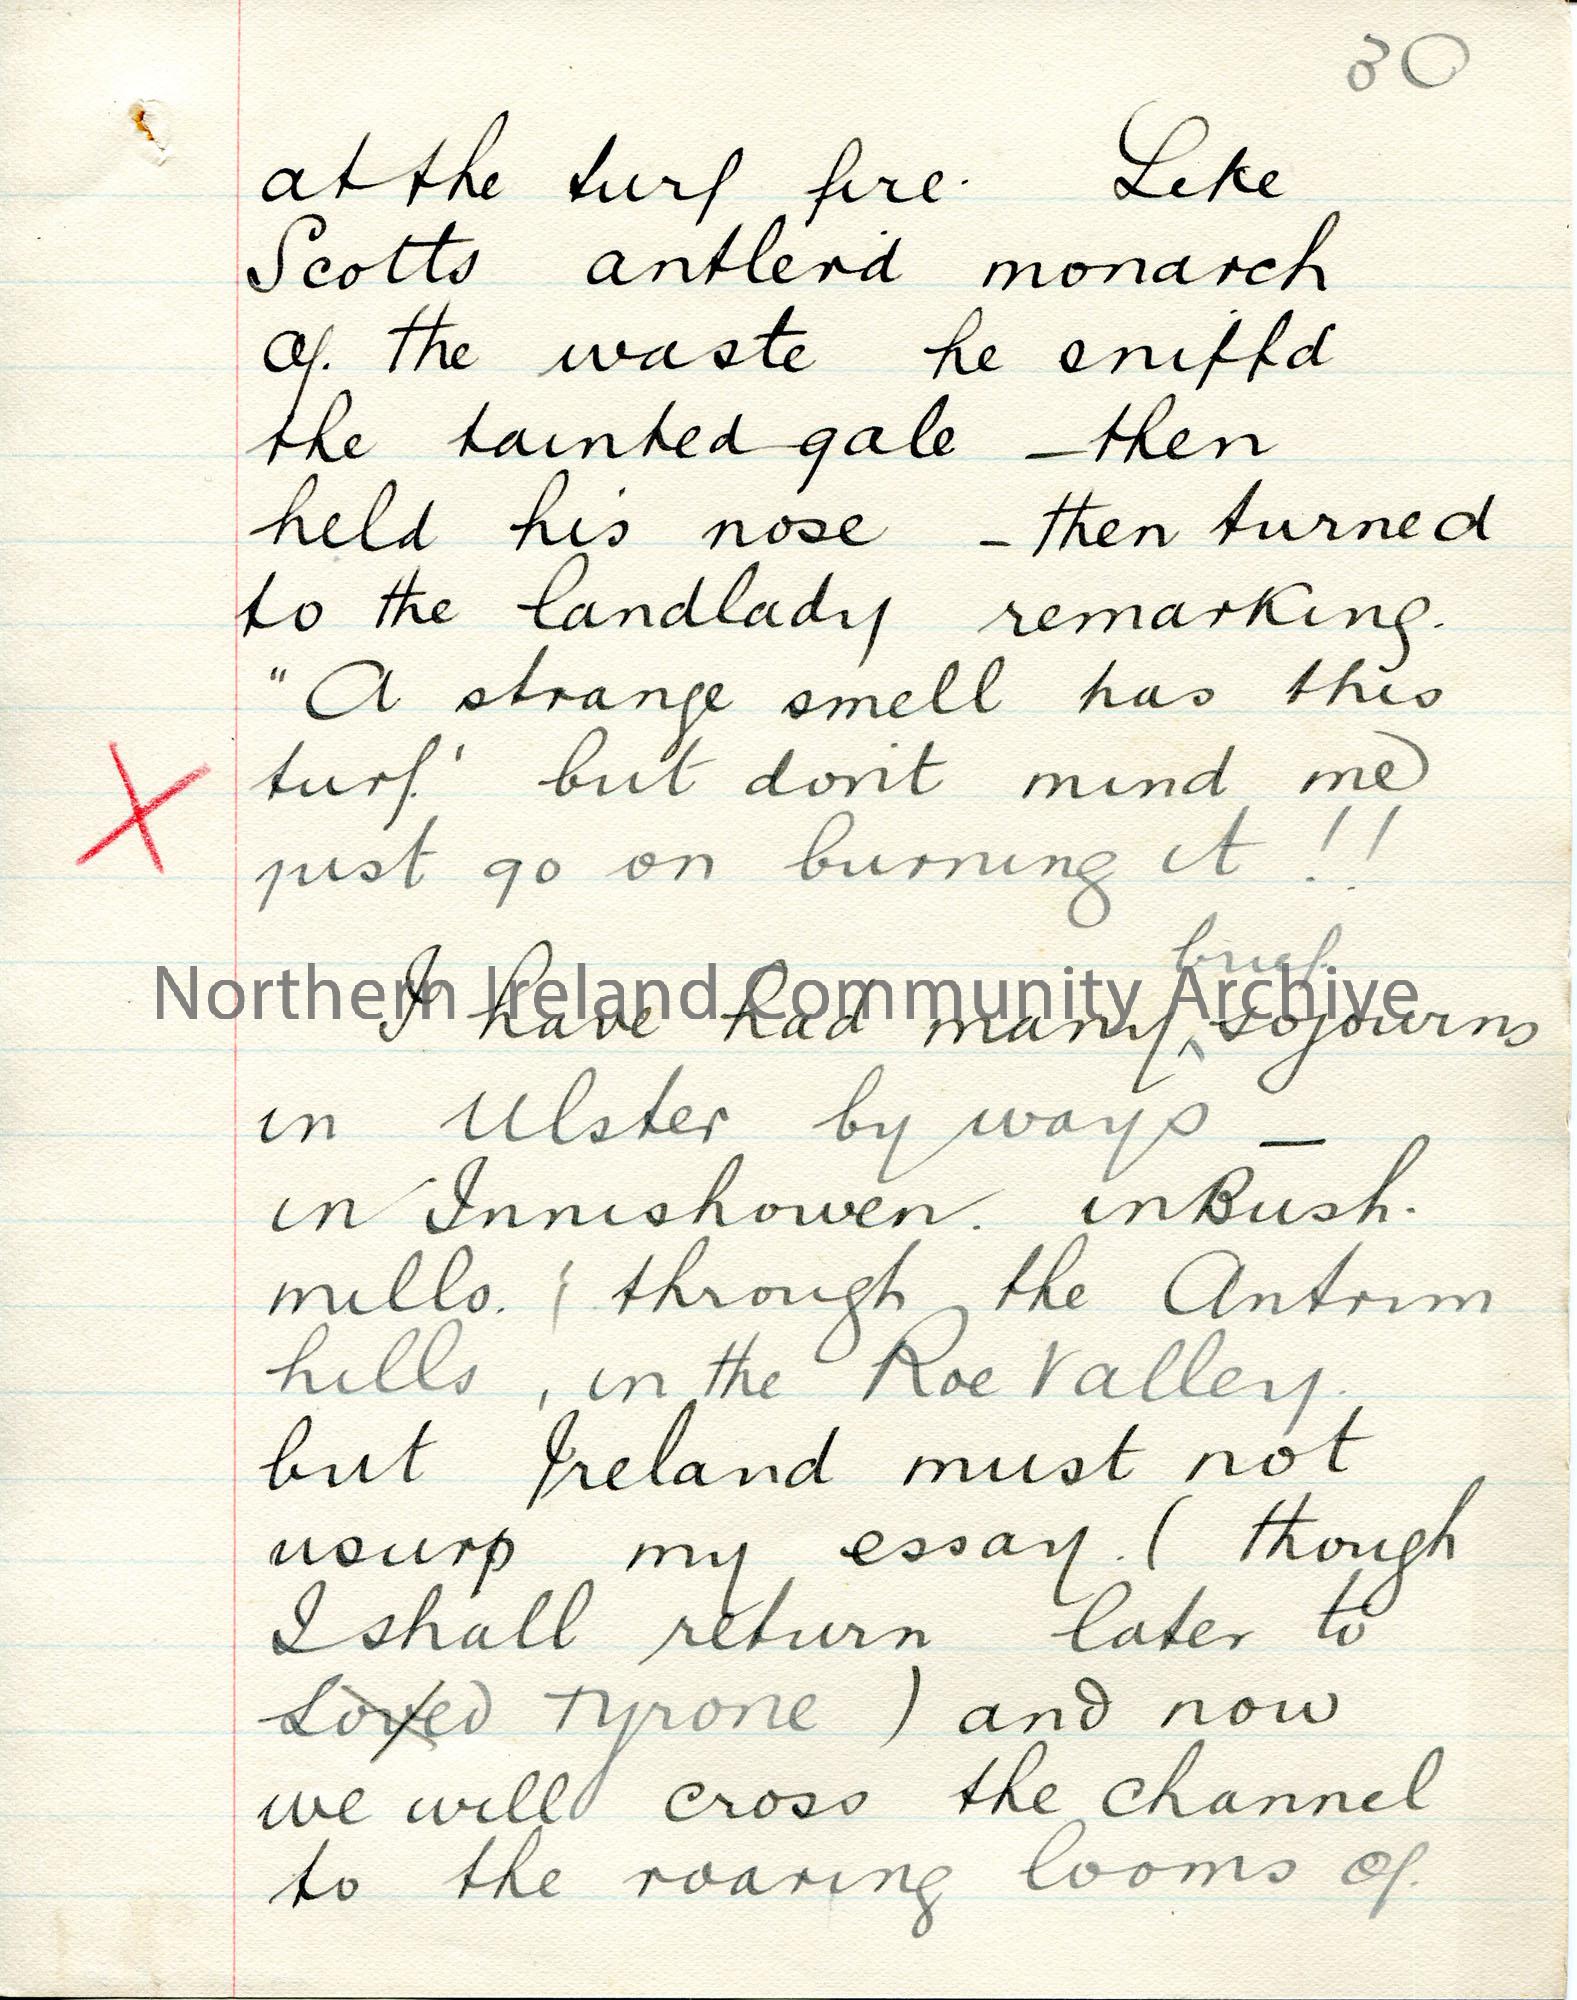 30
at the turf fire. Like
Scotts antlerd monarch
of the waste he sniffd
the tainted gale – then
held his nose – then turned
to the landlady remarking.
"A strange smell has this
turf' but don't mind me
just go on burning it !!
brief
I have had many ^ sojourns
Northern Ireland Community Archive
in Ulster by ways –
in Innishowen. in Bush.
mills. & through the Antrim
hills, in the Roe Valley.
but Ireland must not
usurp my essay. ( though
I shall return later to
Loved Tyrone ) and now
we will cross the channel
to the roaring looms of